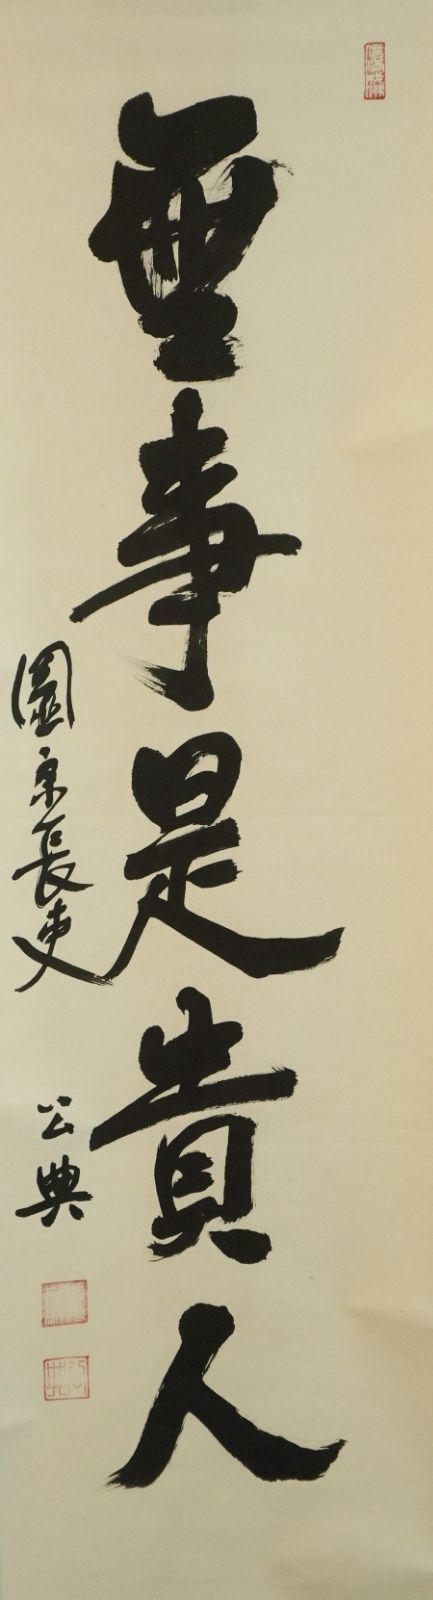 無事是貴人
圓宗長吏
公典